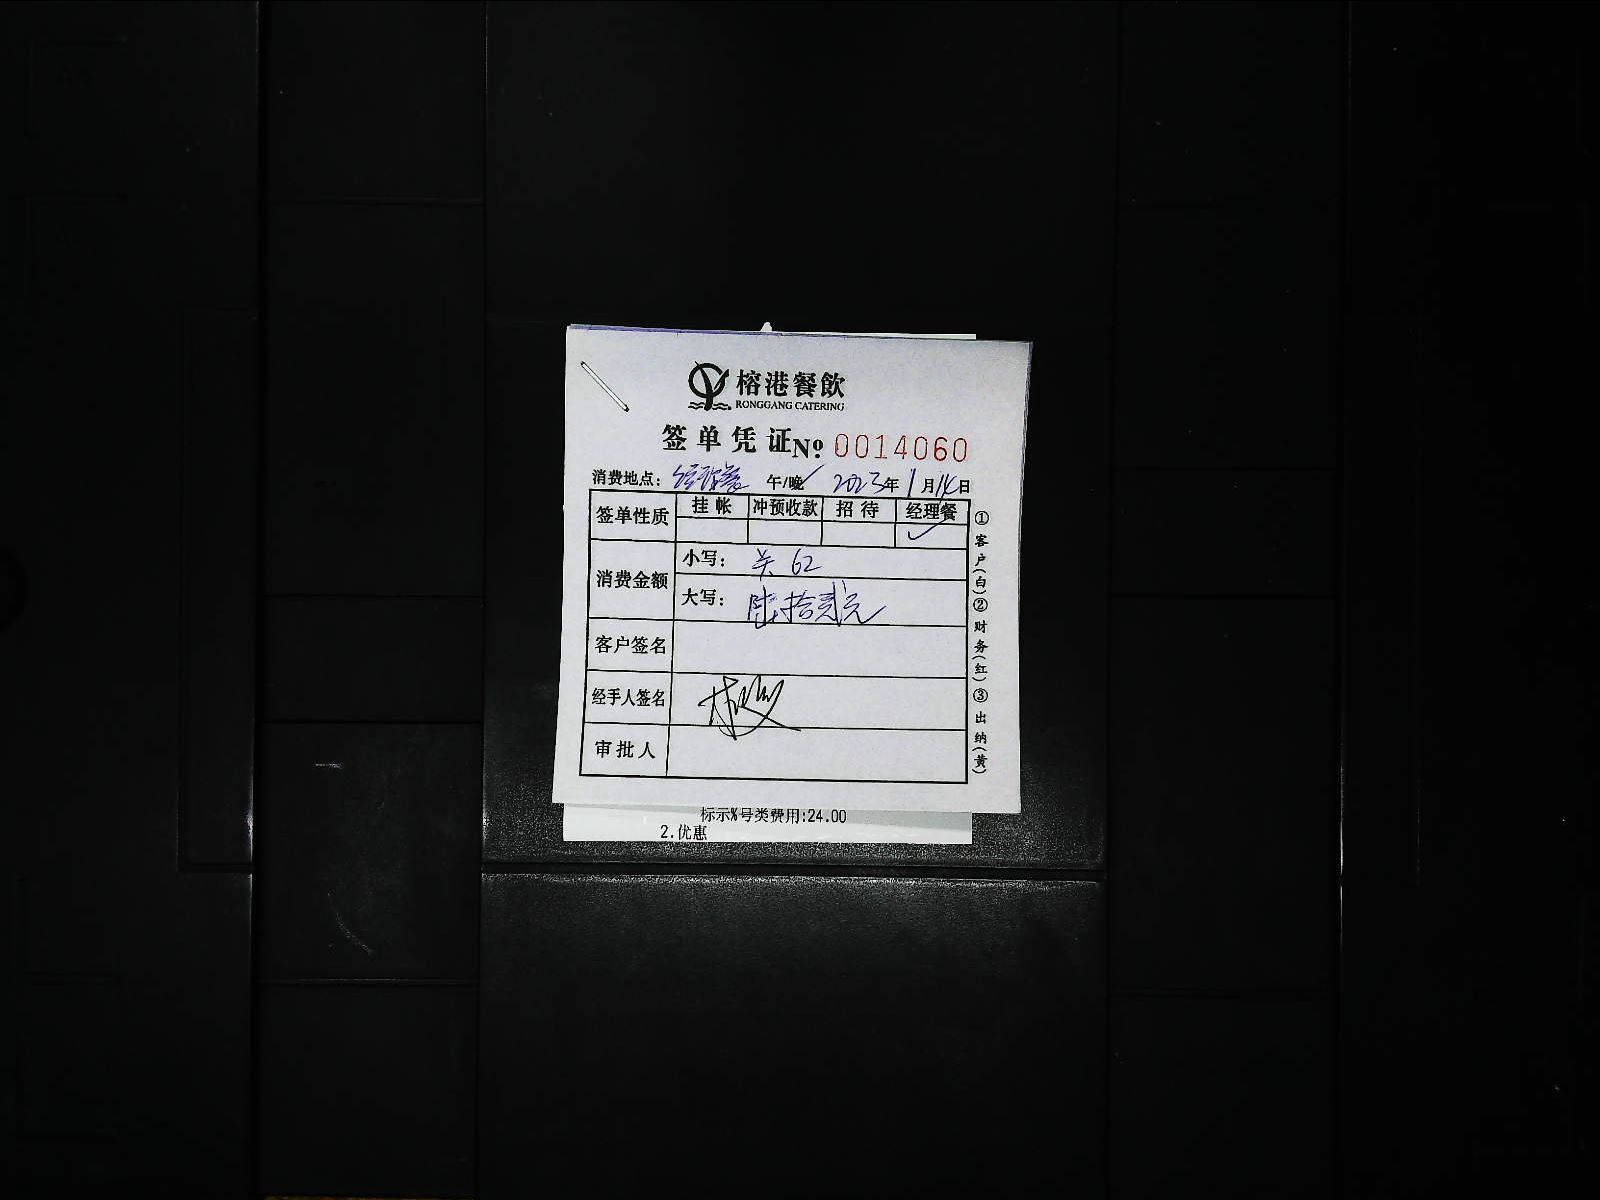 榕港餐飲
RONGGANG CATERING
签单凭证 Nº 0014060
消费地点：经理餐 午/晚 2023年1月14日
签单性质 挂帐 冲预收款 招待 经理餐
✓
消费金额 小写： 62
大写： 陆拾贰元
客户签名
经手人签名
审批人
①客户(白)②财务(红)③出纳(黄)
标示%号类费用:24.00
2.优惠